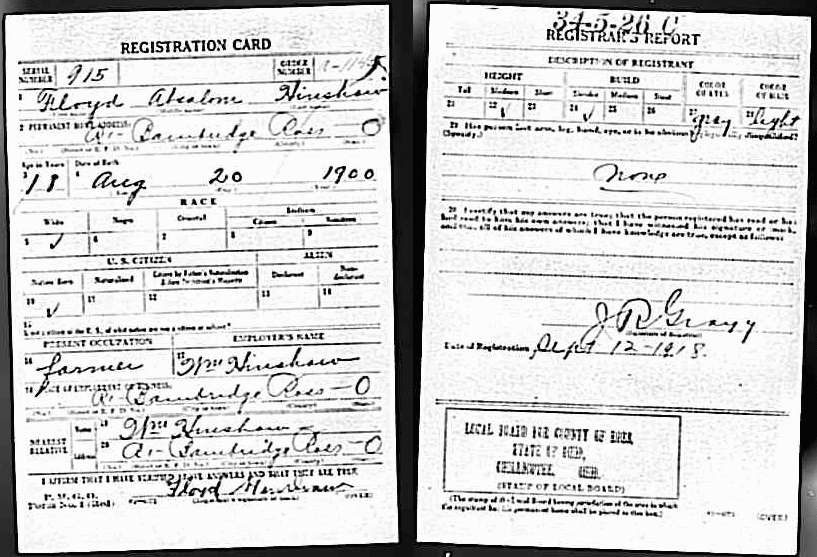 REGISTRATION CARD
SERIAL NUMBER 915 ORDER NUMBER
1 Floyd Absalom Hinshaw
2 PERMANENT HOME ADDRESS:
Bainbridge Ross O
Age in Years Date of Birth
3 18 4 Aug 20 1900
RACE
White Negro Oriental Indian
Citizen Noncitizen
5 ✓ 6 7 8 9
U. S. CITIZEN ALIEN
Native Born Naturalized Citizen by Father's Naturalization Before Registrant's Majority Declarant Non-declarant
10 ✓ 11 12 13 14
15
PRESENT OCCUPATION EMPLOYER'S NAME
16 farmer 17 Wm Hinshaw
18 PLACE OF EMPLOYMENT OR BUSINESS:
Bainbridge Ross O
NEAREST RELATIVE Name 19 Wm Hinshaw
Address 20 Bainbridge Ross O
I AFFIRM THAT I HAVE VERIFIED ABOVE ANSWERS AND THAT THEY ARE TRUE
Floyd Hinshaw
(OVER)
34-5-26 C
REGISTRAR'S REPORT
DESCRIPTION OF REGISTRANT
HEIGHT BUILD COLOR OF EYES COLOR OF HAIR
Tall Medium Short Slender Medium Stout
21 22 ✓ 23 24 ✓ 25 26 27 gray 28 light
29 Has person lost arm, leg, hand, eye, or is he obviously physically disqualified?
(Specify.)
None
30 I certify that my answers are true; that the person registered has read or has
had read to him his own answers; that I have witnessed his signature or mark,
and that all of his answers of which I have knowledge are true, except as follows:
J R Gray
Date of Registration Sept 12-1918.
LOCAL BOARD FOR COUNTY OF ROSS,
STATE OF OHIO,
CHILLICOTHE, OHIO.
(STAMP OF LOCAL BOARD)
(The stamp of the Local Board having jurisdiction of the area in which
the registrant has his permanent home shall be placed in this box.)
(OVER)